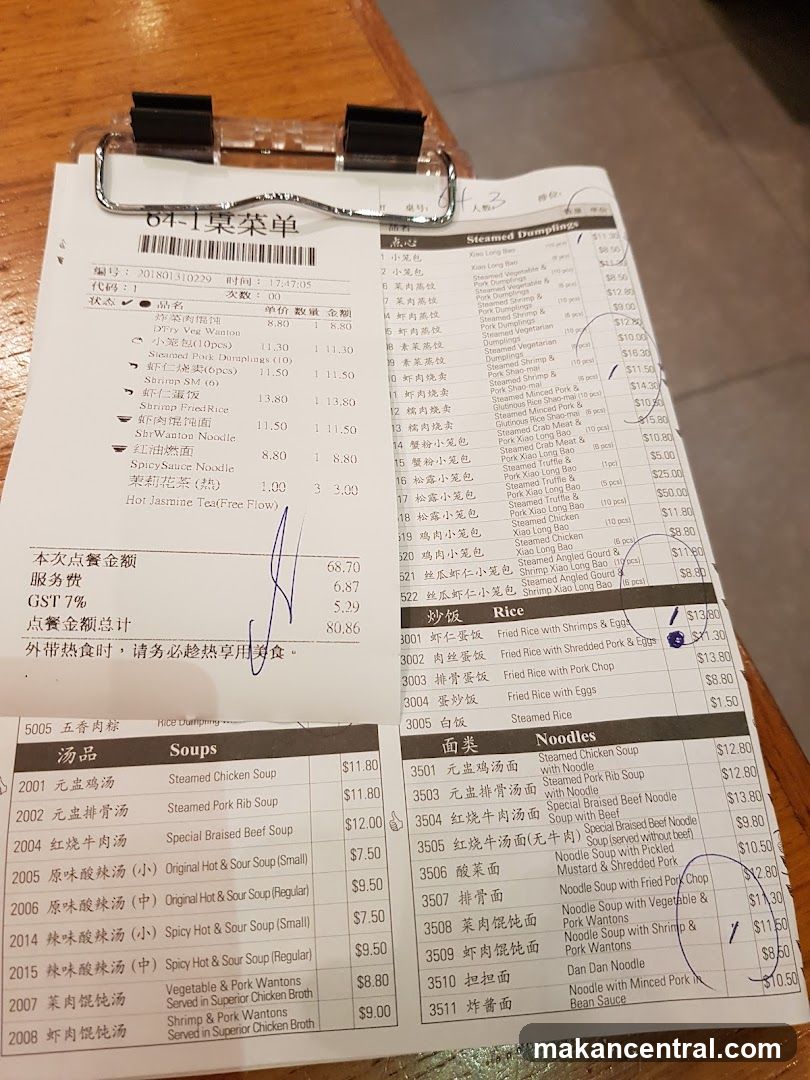 64-1桌菜单
编号: 201801310229 时间: 17:47:05
代码: 1 次数: 00
状态 品名 单价 数量 金额
炸菜肉馄饨 8.80 1 8.80
D'Fry Veg Wanton
小笼包(10pcs) 11.30 1 11.30
Steamed Pork Dumplings (10)
虾仁烧卖(6pcs) 11.50 1 11.50
Shrimp SM (6)
虾仁蛋饭 13.80 1 13.80
Shrimp FriedRice
虾肉馄饨面 11.50 1 11.50
ShrWanton Noodle
红油燃面 8.80 1 8.80
SpicySauce Noodle
茉莉花茶 (热) 1.00 3 3.00
Hot Jasmine Tea(Free Flow)
本次点餐金额 68.70
服务费 6.87
GST 7% 5.29
点餐金额总计 80.86
外带热食时，请务必趁热享用美食。
桌号: 64 人数: 3
品名
点心 Steamed Dumplings
小笼包 Xiao Long Bao
小笼包 Xiao Long Bao
菜肉蒸饺 Steamed Vegetable & Pork Dumplings
菜肉蒸饺 Steamed Vegetable & Pork Dumplings
虾肉蒸饺 Steamed Shrimp & Pork Dumplings
素菜蒸饺 Steamed Vegetarian Dumplings
素菜蒸饺 Steamed Vegetarian Dumplings
虾肉烧卖 Steamed Shrimp & Pork Shao-mai
虾肉烧卖 Steamed Shrimp & Pork Shao-mai
12 糯肉烧卖 Steamed Minced Pork & Glutinous Rice Shao-mai (10 pcs)
13 糯肉烧卖 Steamed Minced Pork & Glutinous Rice Shao-mai (6 pcs)
14 蟹粉小笼包 Steamed Crab Meat & Pork Xiao Long Bao (10 pcs)
15 蟹粉小笼包 Steamed Crab Meat & Pork Xiao Long Bao (6 pcs)
16 松露小笼包 Steamed Truffle & Pork Xiao Long Bao (1pc)
17 松露小笼包 Steamed Truffle & Pork Xiao Long Bao (5 pcs)
18 松露小笼包 Steamed Truffle & Pork Xiao Long Bao (10 pcs)
519 鸡肉小笼包 Steamed Chicken Xiao Long Bao (10 pcs)
520 鸡肉小笼包 Steamed Chicken Xiao Long Bao (6 pcs)
521 丝瓜虾仁小笼包 Steamed Angled Gourd & Shrimp Xiao Long Bao (10 pcs)
522 丝瓜虾仁小笼包 Steamed Angled Gourd & Shrimp Xiao Long Bao (6 pcs)
炒饭 Rice
3001 虾仁蛋饭 Fried Rice with Shrimps & Eggs $13.80
3002 肉丝蛋饭 Fried Rice with Shredded Pork & Eggs $11.30
3003 排骨蛋饭 Fried Rice with Pork Chop $13.80
3004 蛋炒饭 Fried Rice with Eggs $8.80
3005 白饭 Steamed Rice $1.50
面类 Noodles
3501 元盅鸡汤面 Steamed Chicken Soup with Noodle $12.80
3503 元盅排骨汤面 Steamed Pork Rib Soup with Noodle $12.80
3504 红烧牛肉汤面 Special Braised Beef Noodle Soup with Beef $13.80
3505 红烧牛汤面(无牛肉) Special Braised Beef Noodle Soup (served without beef) $9.80
3506 酸菜面 Noodle Soup with Pickled Mustard & Shredded Pork $10.50
3507 排骨面 Noodle Soup with Fried Pork Chop $12.80
3508 菜肉馄饨面 Noodle Soup with Vegetable & Pork Wantons $11.30
3509 虾肉馄饨面 Noodle Soup with Shrimp & Pork Wantons $11.50
3510 担担面 Dan Dan Noodle $8.50
3511 炸酱面 Noodle with Minced Pork in Bean Sauce $10.50
5005 五香肉粽 Rice Dumpling
汤品 Soups
2001 元盅鸡汤 Steamed Chicken Soup $11.80
2002 元盅排骨汤 Steamed Pork Rib Soup $11.80
2004 红烧牛肉汤 Special Braised Beef Soup $12.00
2005 原味酸辣汤 (小) Original Hot & Sour Soup (Small) $7.50
2006 原味酸辣汤 (中) Original Hot & Sour Soup (Regular) $9.50
2014 辣味酸辣汤 (小) Spicy Hot & Sour Soup (Small) $7.50
2015 辣味酸辣汤 (中) Spicy Hot & Sour Soup (Regular) $9.50
2007 菜肉馄饨汤 Vegetable & Pork Wantons Served in Superior Chicken Broth $8.80
2008 虾肉馄饨汤 Shrimp & Pork Wantons Served in Superior Chicken Broth $9.00
makancentral.com